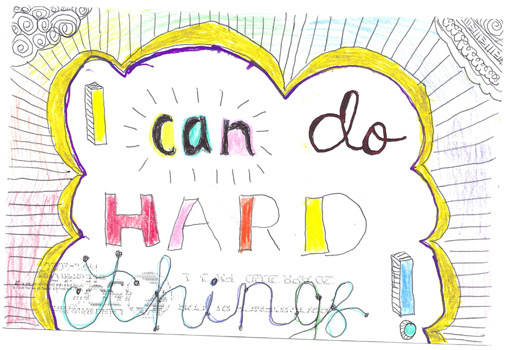 I can do
HARD
things!